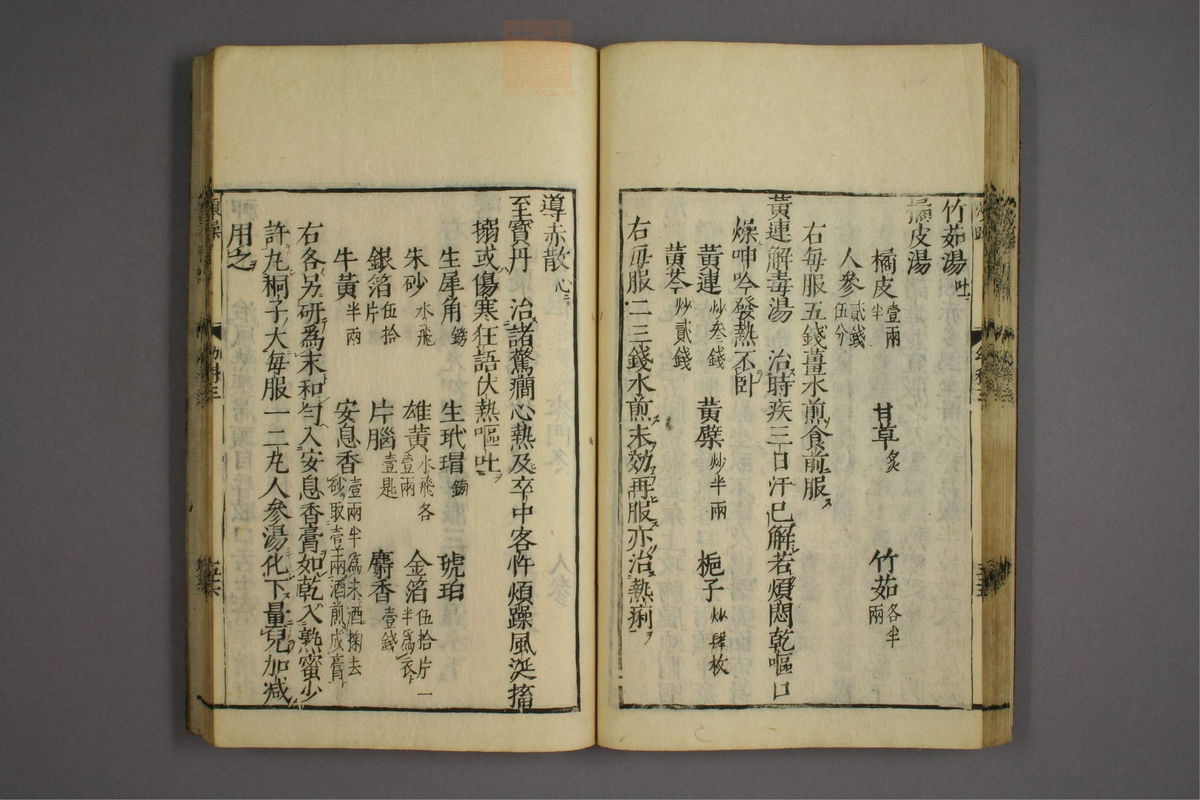 竹茹湯吐ニ
橘皮湯
橘皮壹兩半 甘草炙 竹茹各半兩
人參貳錢伍分
右毎服五錢薑水煎食前服ス
黃連解毒湯 治時疾三日汗已解若煩悶乾嘔口
燥呻吟發熱不卧
黃連炒叁錢 黃檗炒半兩 梔子炒肆枚
黃芩炒貳錢
右毎服二三錢水煎未効再服亦治熱痢
導赤散心ニ
至寶丹 治諸驚癎心熱及卒中客忤煩躁風涎搐
搦或傷寒狂語伏熱嘔吐
生犀角鎊 生玳瑁鎊 琥珀
朱砂水飛 雄黃水飛各壹兩 金箔伍拾片一半爲衣
銀箔伍拾片 片腦壹匙 麝香壹錢
牛黃半兩 安息香壹兩半爲末酒搠去砂取壹兩酒煎成膏
右各另研爲末和勻入安息香膏如乾入熟蜜少
許丸桐子大毎服一二丸人參湯化下量兒加减
用之